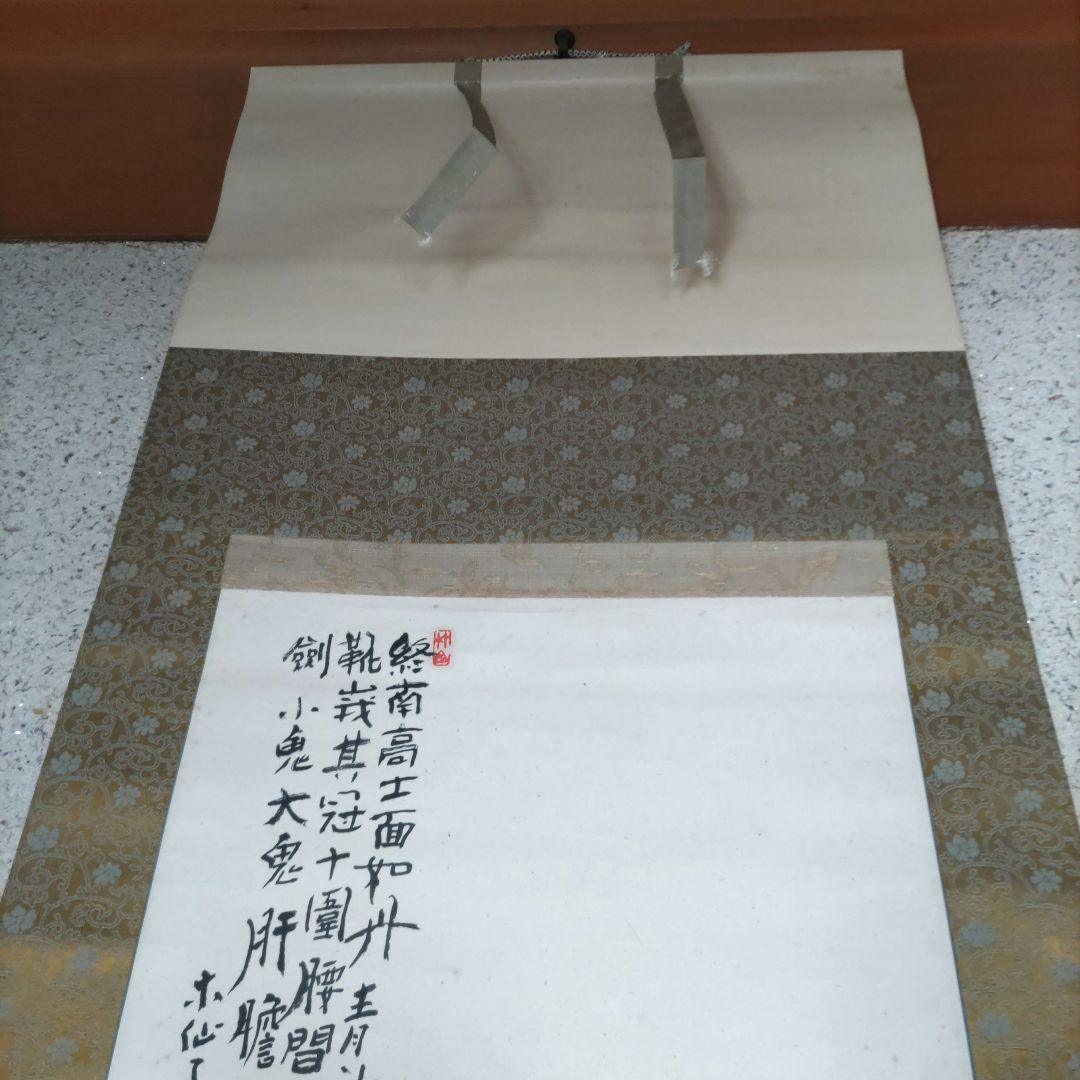 終南高士面如丹青
靴峩其冠十圍腰間
劍小鬼大鬼肝膽
木仙